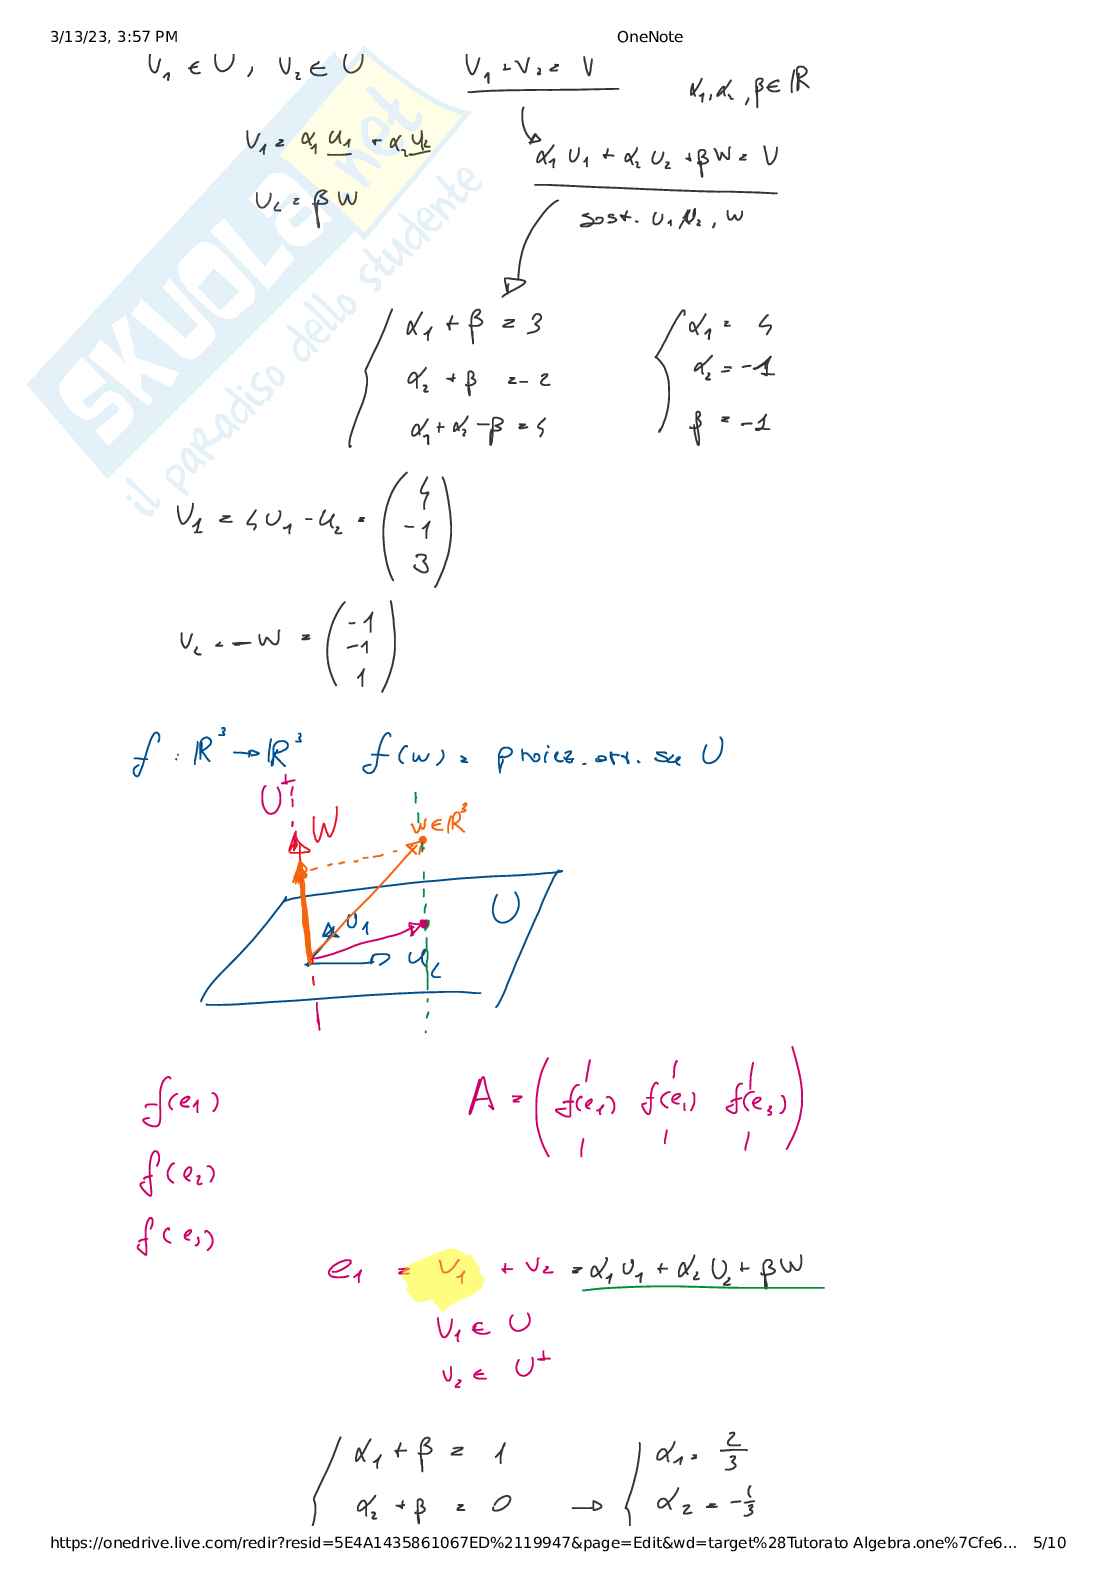 3/13/23, 3:57 PM OneNote
v₁ ∈ U, v₂ ∈ U v₁ + v₂ = v α₁, α₂, β ∈ ℝ
v₁ = α₁ u₁ + α₂ u₂ α₁ u₁ + α₂ u₂ + β w = v
v₂ = β w sost. u₁ u₂, w
α₁ + β = 3 α₁ = 4
α₂ + β = -2 α₂ = -1
α₁ + α₂ - β = 4 β = -1
v₁ = 4 u₁ - u₂ = (4 -1 3)
v₂ = - w = (-1 -1 1)
f : ℝ³ → ℝ³ f(w) = proiez. ort. su U
U⊥
w w ∈ ℝ³
U
u₁
u₂
f(e₁) A = (f(e₁) f(e₂) f(e₃))
f(e₂)
f(e₃)
e₁ = v₁ + v₂ = α₁ u₁ + α₂ u₂ + β w
v₁ ∈ U
v₂ ∈ U⊥
α₁ + β = 1 α₁ = 2/3
α₂ + β = 0 → α₂ = -1/3
SKUOLA.net
il paradiso dello studente
https://onedrive.live.com/redir?resid=5E4A1435861067ED%2119947&page=Edit&wd=target%28Tutorato Algebra.one%7Cfe6… 5/10